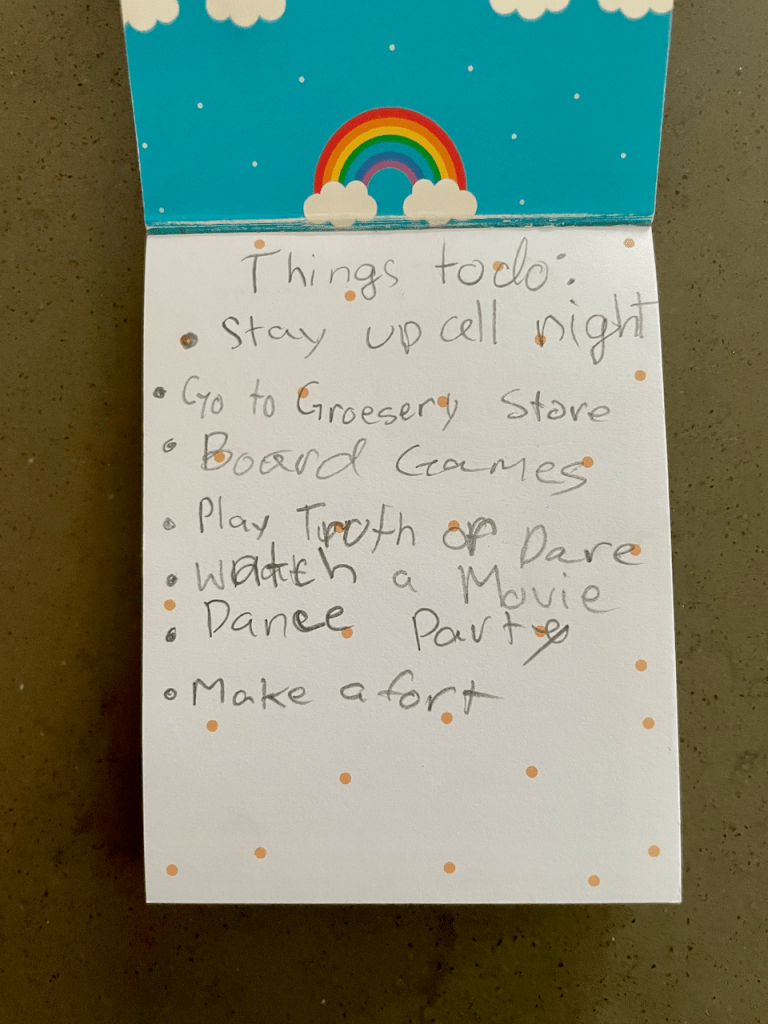 Things to do:
• Stay up all night
• Go to Groesery Store
• Board Games
• Play Truth or Dare
• Watch a Movie
• Dance Party
• Make a fort